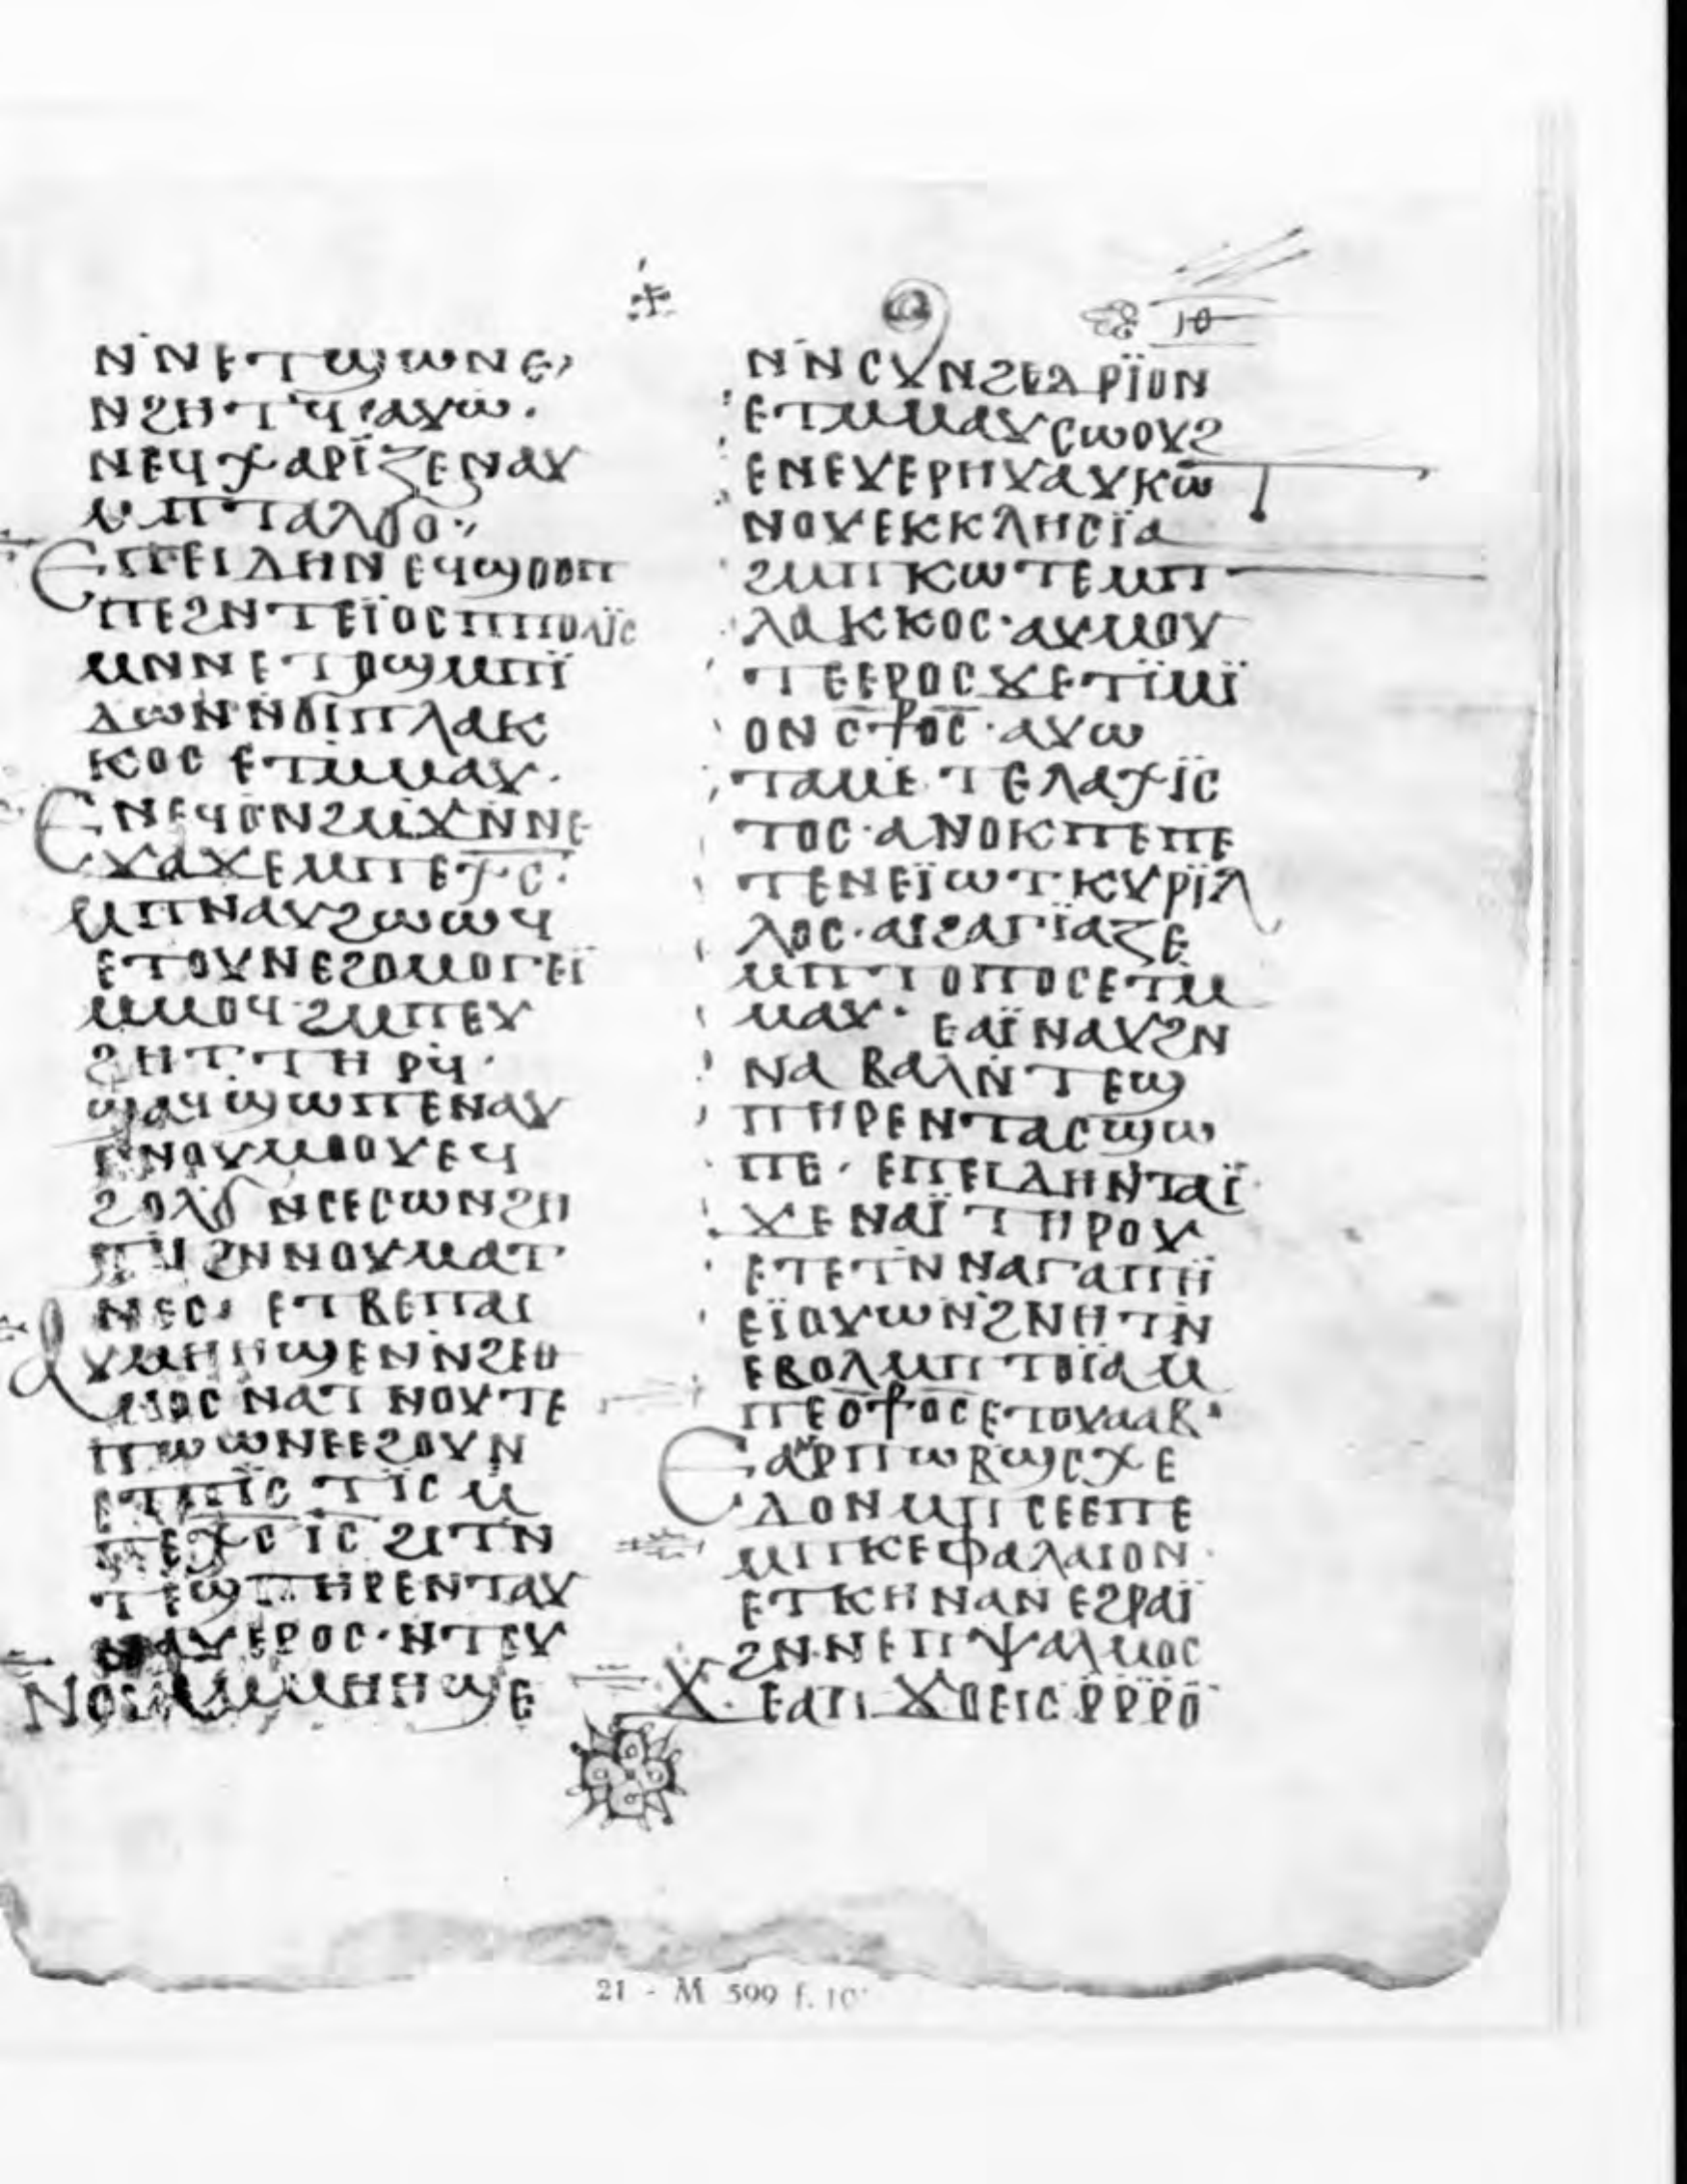 ⲓⲑ
ⲛ̇ⲛⲉⲧϣⲱⲛⲉ,
ⲛϩⲏⲧϥ̇·ⲁⲩⲱ·
ⲛⲉϥⲭⲁⲣⲓ̈ⲍⲉⲛⲁⲩ
ⲙⲡⲧⲁⲗϭⲟ:,
ⲉⲡⲉⲓⲇⲏⲛⲉϥϣⲟⲟⲡ
ⲡⲉϩⲛⲧⲉⲓ̈ⲟⲥⲡⲡⲟⲗⲓ̈ⲥ
ⲙⲛⲛⲉⲧⲟϣⲙⲡⲓ̈
ⲇⲱⲛⲛϭⲓⲡⲗⲁⲕ
ⲕⲟⲥⲉⲧⲙⲙⲁⲩ·
ⲉⲛⲉϥⲟⲛϩⲙϫⲛ̇ⲛⲉ
ϫⲁϫⲉⲙⲡⲉⲭ̅ⲥ̅:
ⲙⲡⲛⲁⲩϩⲱⲱϥ
ⲉⲧⲟⲩⲛⲉϩⲟⲙⲟⲅⲉⲓ̈
ⲙⲙⲟϥϩⲙⲡⲉⲩ
ϩⲏⲧⲧⲏⲣϥ̇·
ϣⲁϥϣⲱⲡⲉⲛⲁⲩ
ⲛⲟⲩⲙⲟⲟⲩⲉϥ
ϩⲟⲗϭⲛⲥⲉⲥⲱⲛϩⲏ
ⲧϥϩⲛⲛⲟⲩⲙⲁⲧ
ⲛⲉⲥ· ⲉⲧⲃⲉⲡⲁⲓ
ⲁⲩⲙⲏⲏϣⲉⲛⲛϩⲉⲑ
ⲛⲟⲥⲛⲁⲧⲛⲟⲩⲧⲉ
ⲡⲱⲱⲛⲉⲉϩⲟⲩⲛ
ⲉⲧⲡⲓ̈ⲥⲧⲓ̈ⲥⲙ
ⲡⲉⲭ̅ⲥ̅ ⲓ̅ⲥ̅ϩⲓⲧⲛ̇
ⲧⲉϣⲡⲏⲣⲉⲛⲧⲁⲩ
ⲛⲁⲩⲉⲣⲟⲥ·ⲛⲧⲉⲩ
ⲛⲟⲩⲁⲙⲙⲏⲏϣⲉ
ⲛ̇ⲛⲥⲩⲛϩⲉⲇⲣⲓ̈ⲟⲛ
ⲉⲧⲙⲙⲁⲩⲥⲱⲟⲩϩ
ⲉⲛⲉⲩⲉⲣⲏⲩⲁⲩⲕⲱⲧ
ⲛⲟⲩⲉⲕⲕⲗⲏⲥⲓ̈ⲁ
ϩⲙⲡⲕⲱⲧⲉⲙⲡ
ⲗⲁⲕⲕⲟⲥ·ⲁⲩⲙⲟⲩ
ⲧⲉⲉⲣⲟⲥϫⲉⲧⲓ̈ⲙⲓ̈
ⲟⲛⲥ̅ⳁⲟ̅ⲥ̅·ⲁⲩⲱ
ⲧⲁⲙⲉⲧⲉⲗⲁⲭⲓ̈ⲥ
ⲧⲟⲥ·ⲁⲛⲟⲕⲡⲉⲡⲉ
ⲧⲉⲛⲉⲓ̈ⲱⲧⲕⲩⲣⲓ̈ⲗ
ⲗⲟⲥ·ⲁⲓϩⲁⲅⲓ̈ⲁⲍⲉ
ⲙⲡⲧⲟⲡⲟⲥⲉⲧⲙ
ⲙⲁⲩ· ⲉⲁⲓ̈ⲛⲁⲩϩⲛ
ⲛⲁⲃⲁⲗⲛ̇ⲧⲉϣ
ⲡⲏⲣⲉⲛⲧⲁⲥϣⲱ
ⲡⲉ· ⲉⲡⲉⲓⲇⲏⲛⲧⲁⲓ̈
ϫⲉⲛⲁⲓ̈ⲧⲏⲣⲟⲩ
ⲉⲧⲉⲧⲛ̇ⲛⲁⲅⲁⲡⲏ
ⲉⲓ̈ⲟⲩⲱⲛϩⲛⲏⲧⲛ̇
ⲉⲃⲟⲗⲙⲡⲧⲟⲓ̈ⲁⲙ
ⲡⲉⲥ̅ⳁⲟ̅ⲥ̅ⲉⲧⲟⲩⲁⲁⲃ·
ⲉⲁⲛⲣⲡⲱⲃϣⲥⲭⲉ
ⲇⲟⲛⲙⲡⲥⲉⲉⲡⲉ
ⲙⲡⲕⲉⲫⲁⲗⲁⲓⲟⲛ·
ⲉⲧⲕⲏⲛⲁⲛⲉϩⲣⲁⲓ̈
ϩⲛⲛⲉⲡⲯⲁⲗⲙⲟⲥ
ϫⲉⲁⲡϫⲟⲉⲓⲥⲣ̇ⲣ̇ⲣ̇ⲟ̇
21 - M 599 f. 10